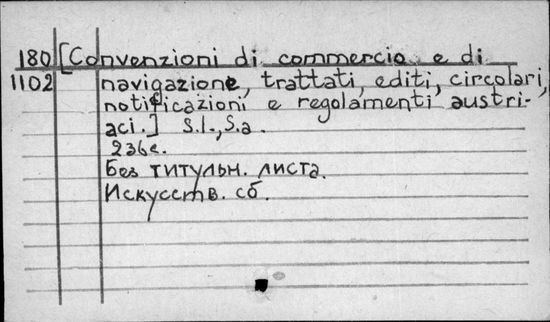 180 [Convenzioni di commercio e di
1102 navigazione, trattati, editi, circolari,
notificazioni e regolamenti austri-
aci.] S.l., S.a.
236с.
Без титульн. листа.
Искусств. сб.